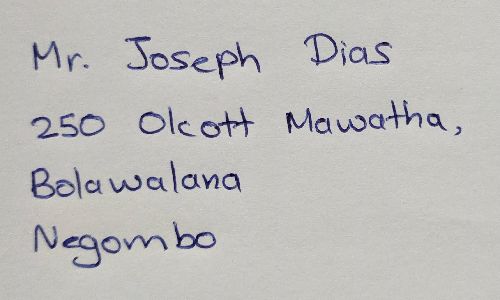 Mr. Joseph Dias
250 Olcott Mawatha,
Bolawalana
Negombo